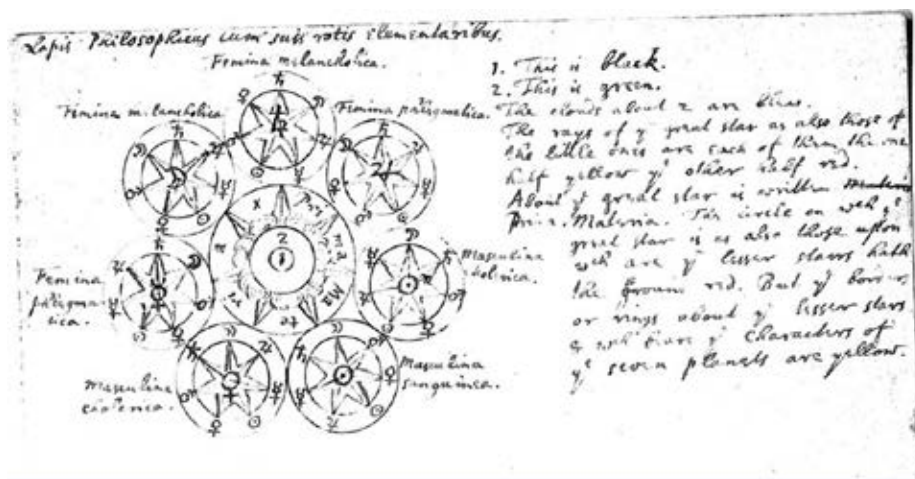 Lapis Philosophicus cum suis rotis elementaribus.
Femina melancholica.
Femina melancholica.
Femina phlegmatica.
Femina
phlegma
tica.
Masculina
cholerica.
Masculina
sanguinea.
Masculina
cholerica.
Prima
Materia
1. This is black.
2. This is green.
The clouds about 2 are blue.
The rays of yᵉ great star as also those of
the little ones are each of them, the one
half yellow yᵉ other half red.
About yᵉ great star is written
Prima Materia. The circle on wᶜʰ yᵉ
great star is as also those upon
wᶜʰ are yᵉ lesser starrs hath
the ground red. But yᵉ borders
or rings about yᵉ lesser stars
& wᶜʰ beare yᵉ characters of
yᵉ seven planets are yellow.